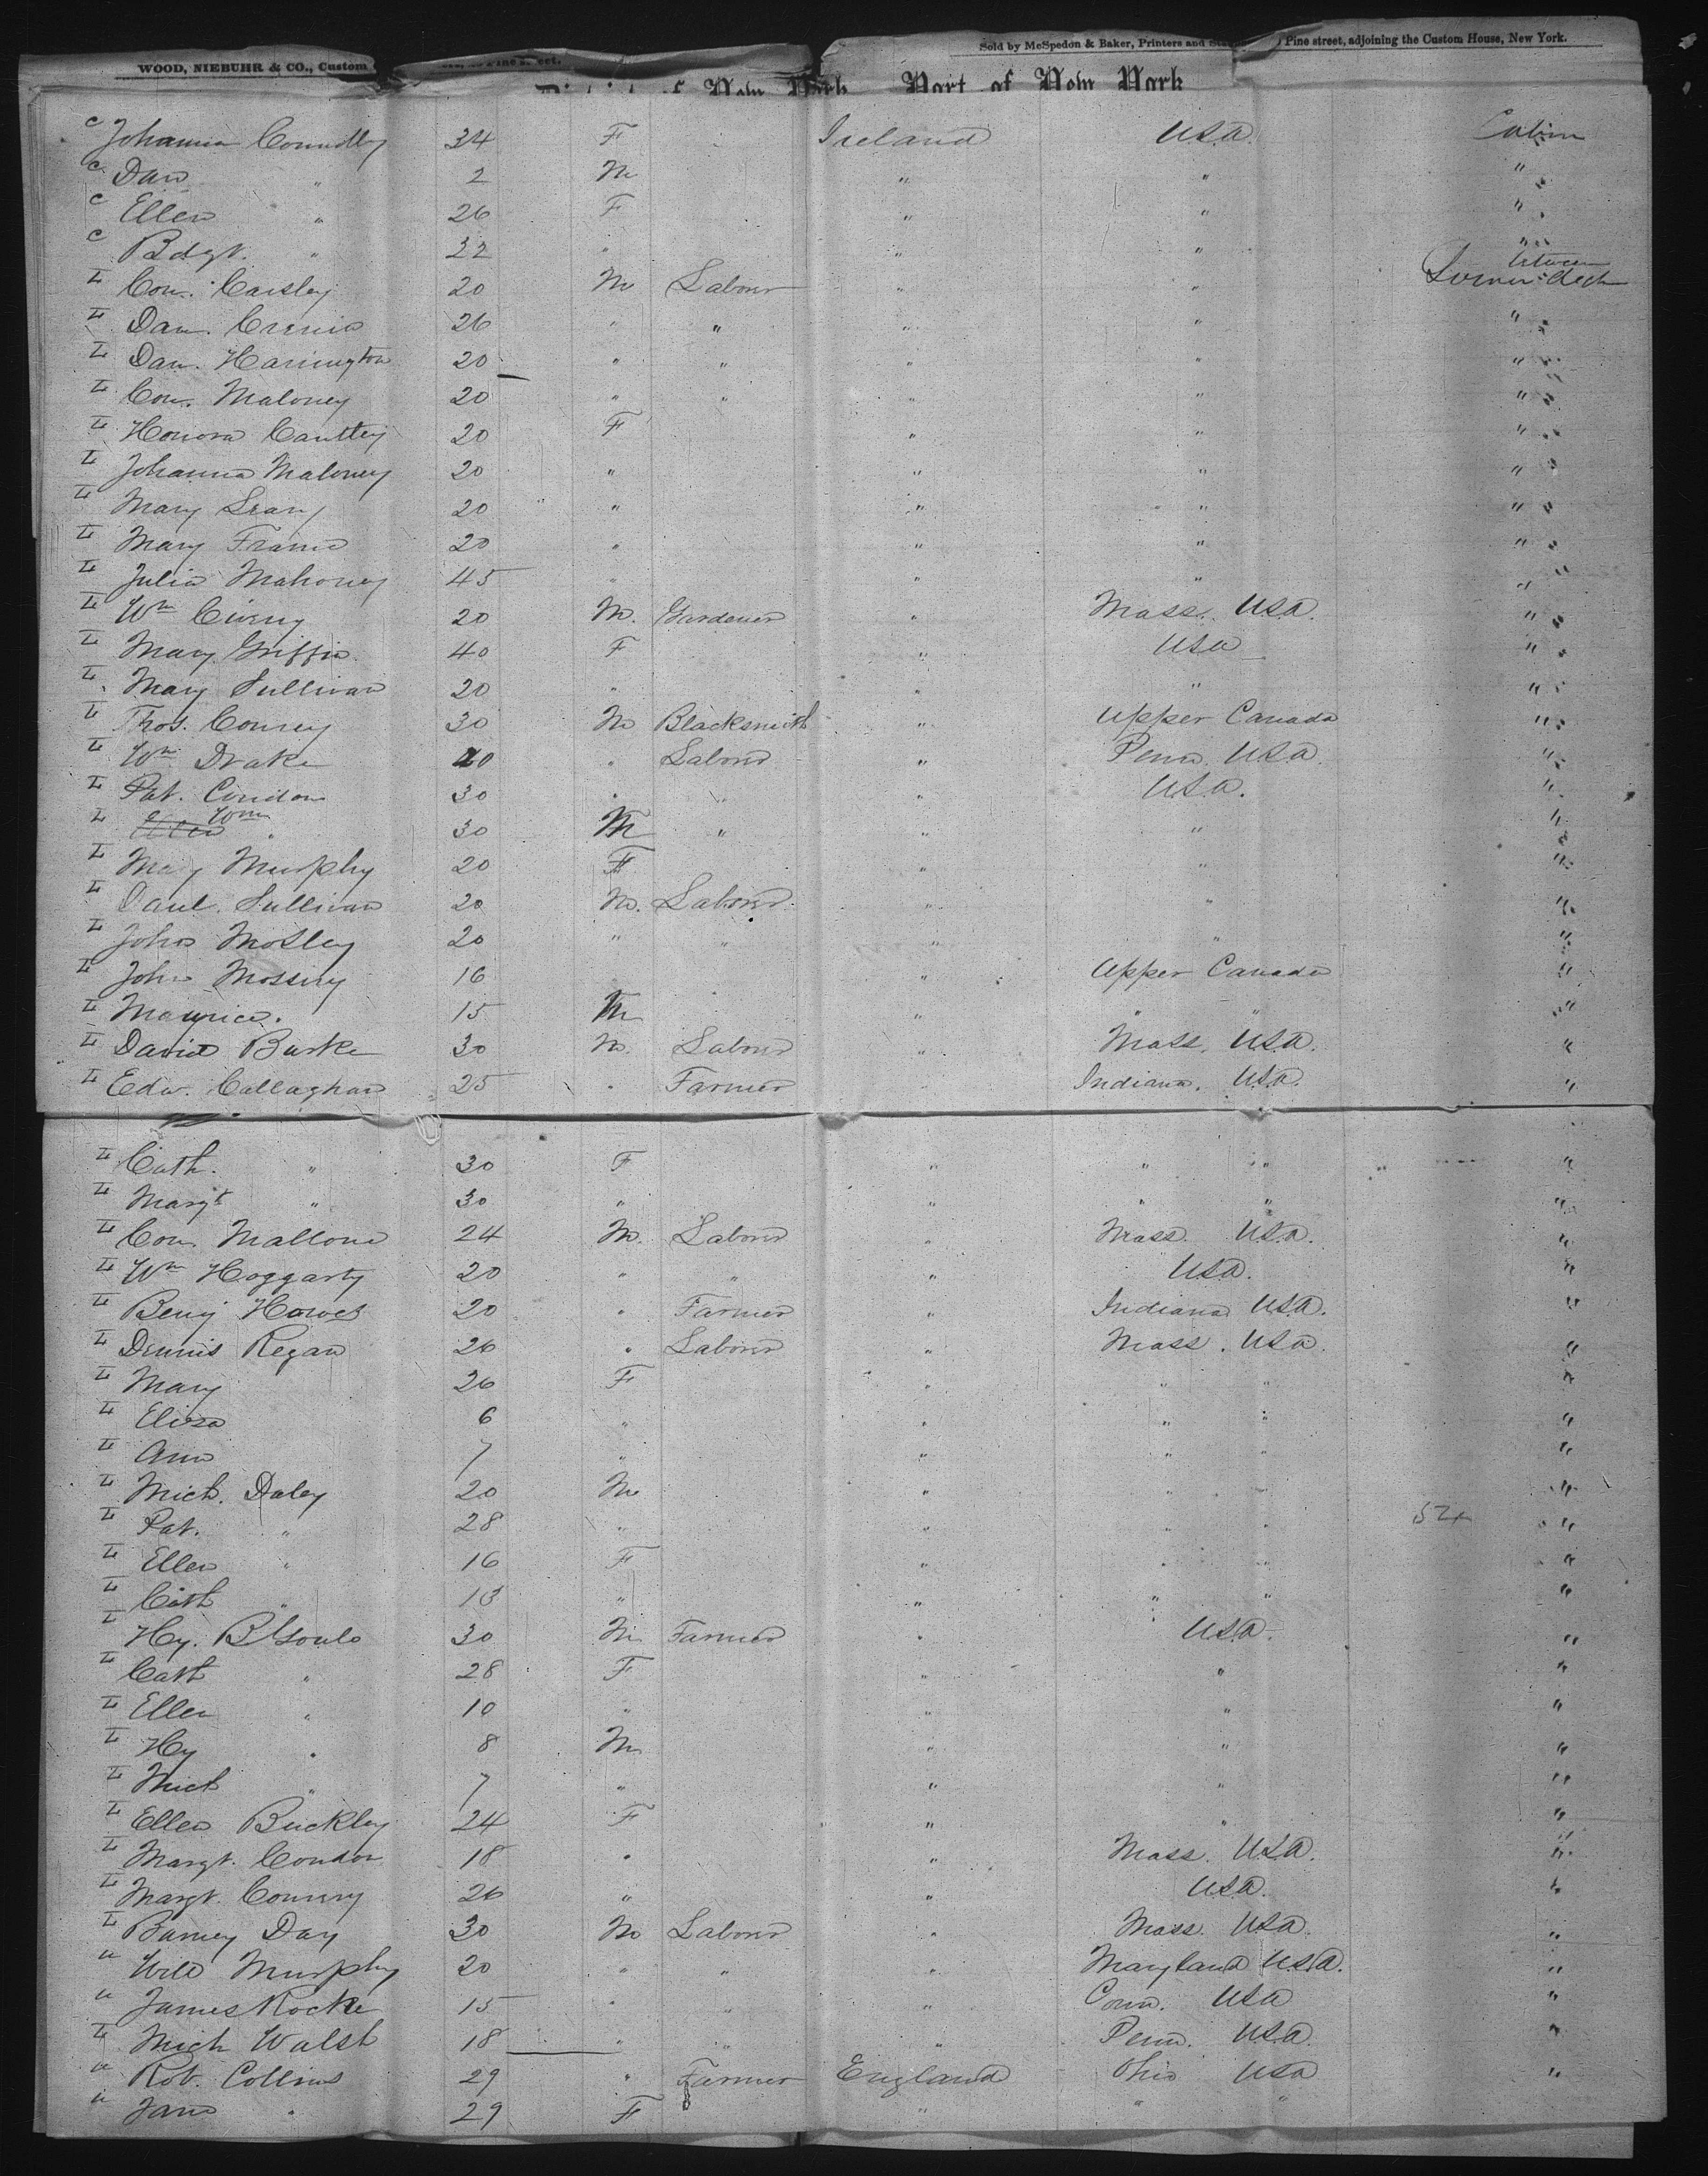 WOOD, NIEBUHR & CO., Custom Pine street.
Sold by McSpedon & Baker, Printers and Pine street, adjoining the Custom House, New York.
District of New York Port of New York
C Johanna Connolly 34 F Ireland USA. Cabin
C Dan " 2 M " " "
C Ellen " 26 F " " "
C Bdgt. " 22 " " " "
I Con. 20 M Labour " " between Lower deck
I Dan. 26 " " " " "
I Dan. Harrington 20 " " " " "
I Con. Maloney 20 " " " " "
I Honora 20 F " " "
I Johanna Maloney 20 " " " "
I Mary Leary 20 " " " "
I Mary 20 " " " "
I Julia Mahoney 45 " " " "
I Wm 20 M. Gardener " Mass. USA. "
I Mary Griffin 40 F " USA "
I Mary Sullivan 20 " " " "
I Thos. 30 M Blacksmith " Upper Canada "
I Wm Drake 20 " Labour " Penn. USA. "
I Pat. Condon 30 " " " USA. "
I Wm " 30 M " " " "
I Mary Murphy 20 F " " "
I Danl. Sullivan 20 M. Labour " " "
I John 20 " " " " "
I John 16 " " Upper Canada "
I Maurice. 15 M " " " "
I David Burke 30 M. Labour " Mass. USA. "
I Edw. Callaghan 25 " Farmer " Indiana. USA. "
I Cath. " 30 F " " " "
I Margt " 30 " " " " "
I Con. Mallone 24 M. Labour " Mass USA. "
I Wm Hoggarty 20 " " " USA. "
I Benj Howes 20 " Farmer " Indiana USA. "
I Dennis Regan 26 " Labour " Mass. USA. "
I Mary 26 F " " " "
I Eliza 6 " " " " "
I Ann 7 " " " " "
I Mich. Daley 20 M " " " "
I Pat. " 28 " " " " "
I Ellen " 16 F " " " "
I Cath " 13 " " " " "
I Hy. 30 M Farmer " USA. "
I Cath " 28 F " " "
I Ellen " 10 " " " "
I Hy " 8 M " " "
I Mich " 7 " " " "
I Ellen Buckley 24 F " " "
I Margt. Condon 18 " " Mass. USA. "
I Margt. 26 " " USA. "
I Barney Day 30 M Labour " Mass. USA. "
" Will Murphy 20 " " " Maryland USA. "
" James Rocke 15 " " " Conn. USA "
I Mich Walsh 18 " " " Penn. USA. "
" Rob. Collins 29 " Farmer England Ohio USA "
" Jane " 29 F " " "